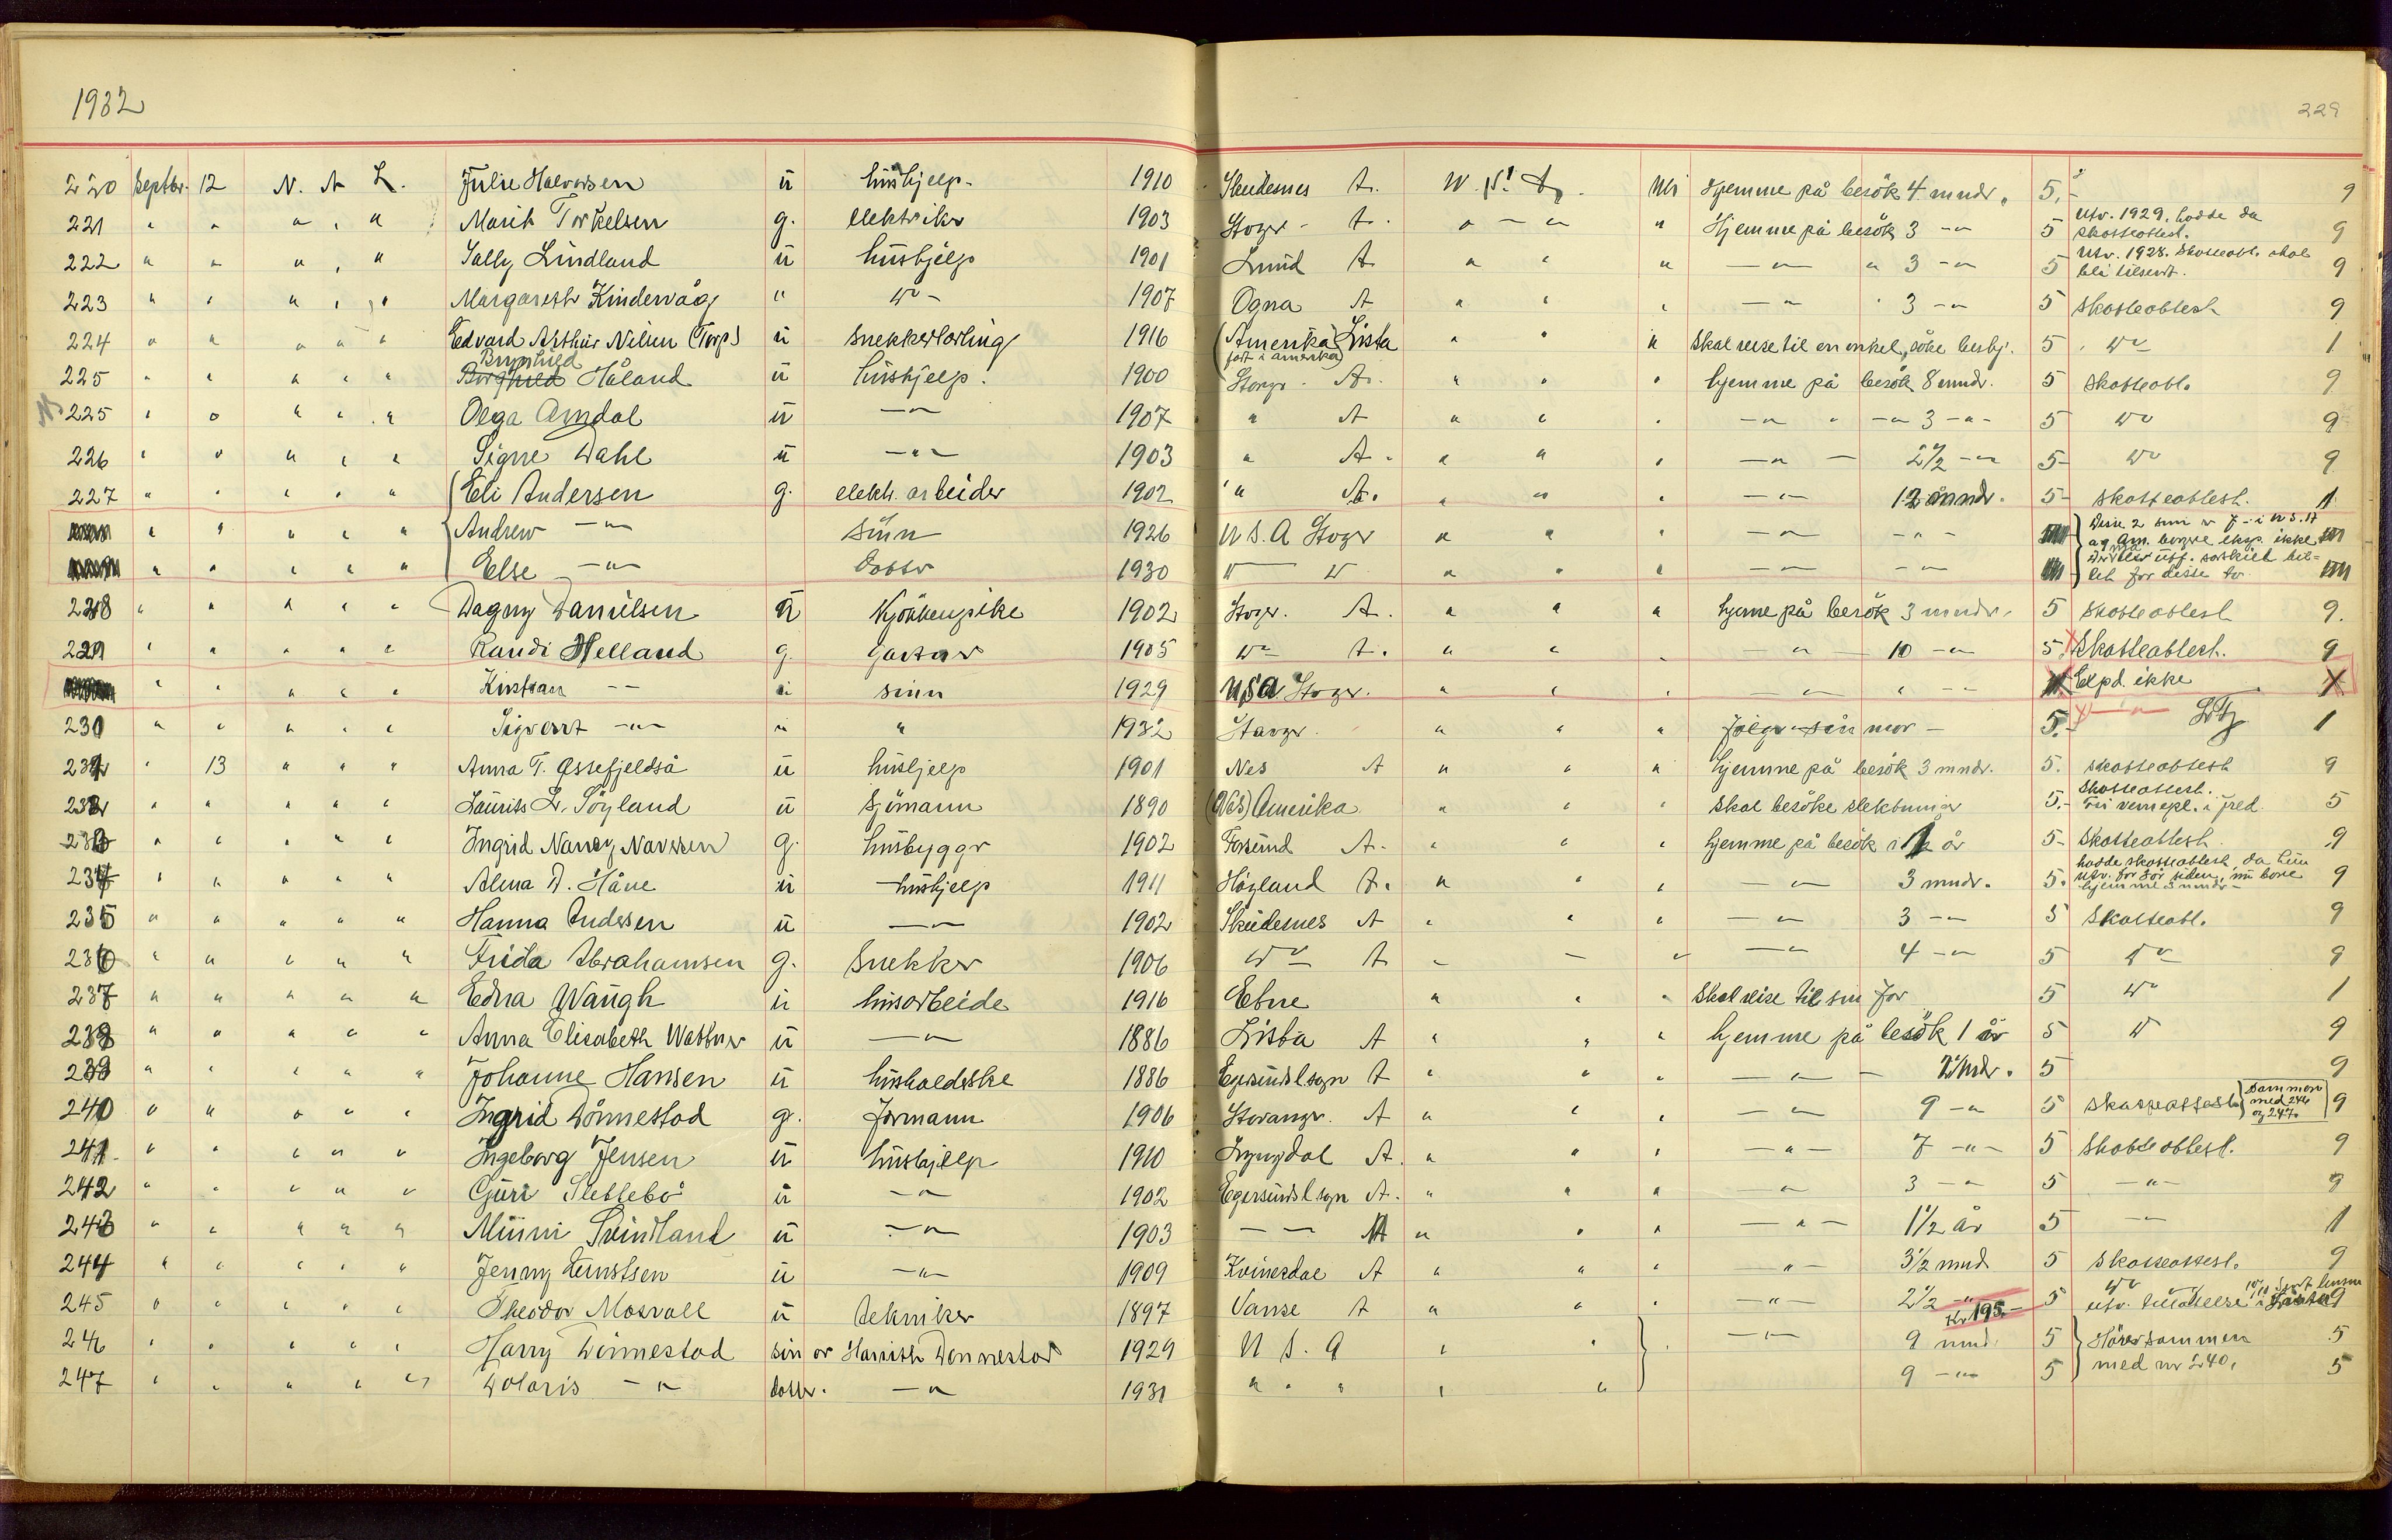 1932
229
220 Septbr. 12 N. A L. Julie Halvorsen ü hüshjelp. 1910 Skudenes A. Uli Hjemme på besök 4 mndr. 5.- 9
221 " " " , " Marit Torkelsen g. elektriker 1903 Stvgr - A. " - " " Hjemme på besök 3 -"- 5 Utv. 1929, hadde da skatteattest. 9
222 " " " , " Sally Lindland ü hüshjelp 1901 Lund A. " " " -"- " 3 -"- 5 Utv. 1928. Skatteatt. skal bli tilsendt. 9
223 " " " , " Margareth Kindervåg " Do- 1907 Ogna A " " " -"- " 3 -"- 5 Skatteattest 9
224 " " " " " Edvard Arthür Nilsen (Torp) ü snekkerlærling 1916 (Amerika) Lista " " " Skal reise til en onkel, söke beskj. 5 . Do 1
født i amerika)
Brynhild
225 " " " " " Borghild Håland ü hüshjelp. 1900 Stvgr. A. " " " hjemme på besök 8 mndr. 5 Skatteatt. 9
225 " " " " " Olga Amdal ü -"- 1907 " A " " " -"- " -"- 3 -"- 5 Do 9
226 " " " " " Signe Dahl ü -"- 1903 " A. " " " -"- - 2 1/2 -"- 5- Do 9
227 " " " " " (Eli Andersen g. elektr. arbeider 1902 " A. " " " -"- 12 mndr. 5- skatteattest. 1
" " " " " Andrew -"- sünn 1926 U S. A Stvgr " " " -"- -"- } Disse 2 som er f - i U S. A
" " " " " Else -"- dotter 1930 " " " " " -"- -"- let for disse to.
228 " " " " " Dagny Danielsen ü Kjökkenpike 1902 Stvgr. A. " " " hjeme på besök 3 mndr. 5 Skatteattest 9.
229 " " " " " Randi Helland g. gartner 1905 Do A. " " " -"- 10 -"- 5. Skatteattest. 9
" " " " " Kristian -- " sünn 1929 USA Stvgr. " " " -"- " -- Expd. ikke X
230 " " " " " Sigvart -"- " " 1932 Stavgr. " " " fölger sin mor - 5.- 1
231 " 13 " " " Anna T. Åssefjeldså ü hüshjelp 1901 Nes A " " " hjemme på besök 3 mndr. 5. skatteattest 9
232 " " " " " Laurits L. Söyland ü Sjömann 1890 (Nes) Amerika " " " Skal besöke slektninger 5.- Skatteattest. Fri vernepl. i fred. 5
233 " " " " " Ingrid Nancy Narvesen g. hüsbygger 1902 Forsand A. " " " hjemme på besök i 1 år 5- Skatteattest. 9
234 " " " " " Alma D. Håve ü hüshjelp 1911 Höyland A. " " " -"- 3 mndr. 5. hadde skatteattest, da hün utv. for 3 år siden, nü bare hjemme 3 mndr - 9
235 " " " " " Hanna Andersen ü -"- 1902 Skudenes A " " " -"- 3 -"- 5 Skatteatt. 9
236 " " " " " Frida Abrahamsen g. Snekker 1906 Do A " - " -"- 4 -"- 5 Do 9
237 " " " " " Edna Waugh ü hüsarbeide 1916 Etne " " " Skal reise til sin far 5 Do 1
238 " " " " " Anna Elisabeth Wattner ü -"- 1886 Lista A " " " hjemme på besök 1 år 5 Do 9
239 " " " " " Johanne Hansen ü hüsholderske 1886 Egersund l sogn A " " " -"- - 2 1/2 mdr. 5 9
240 " " " " " Ingrid Dönnestad g. formann 1906 Stavanger. A " " " -"- 9 -"- 5 skatteattest } Sammen med 246 og 247. 9
241 " " " " " Ingeborg Jensen ü hüshjelp 1910 Lyngdal A. " " " -"- 7 -"- 5 skatteattest. 9
242 " " " " " Guri Slettebö ü -"- 1902 Egersund l sogn A. " " " -"- 3 -"- 5 -"- 9
243 " " " " " Minni Svindland ü -"- 1903 -- A " " " -"- 1 1/2 år 5 -"- 1
244 " " " " " Jenny Ernstsen ü -"- 1909 Kvinesdal A " " " -"- 3 1/2 mnd 5 skatteattest. 9
245 " " " " " Theodor Mosvall ü tekniker 1897 Vanse A " " " -"- 2 1/2 -"- 5 Do utv. tillatelse i Lista 9
Kr 195.-
246 " " " " " Harry Dönnestad sün av Harrith Dönnestad 1929 U S. A " " } " -"- 9 mnd. 5 } Hörer sammen 5
247 " " " " " Dolaris -"- dotter. -"- 1931 " " " " " 9 -"- 5 med nr 240. 5